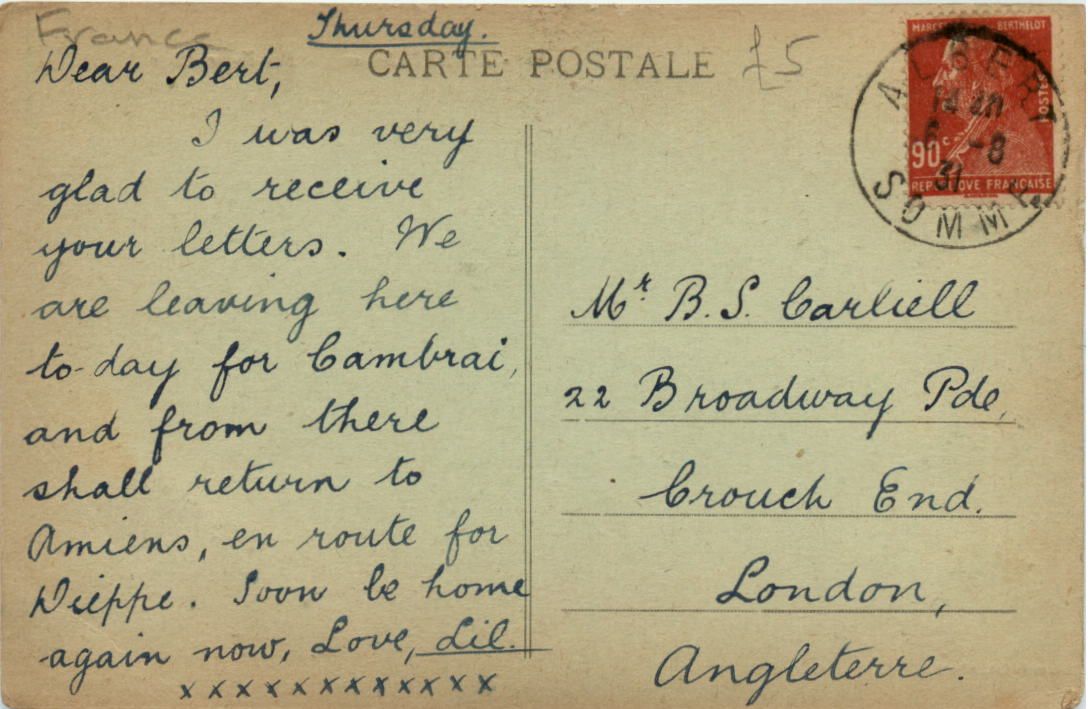 France
Thursday.
CARTE POSTALE
£5
Dear Bert,
I was very
glad to receive
your letters. We
are leaving here
to-day for Cambrai,
and from there
shall return to
Amiens, en route for
Dieppe. Soon be home
again now, Love, Lil.
xxxxxxxxxxxx
MARCELIN BERTHELOT
POSTES
90c
REPUBLIQUE FRANÇAISE
ALBERT
6 -8
31
SOMME
Mr. B. S. Carliell
22 Broadway Pde,
Crouch End.
London,
Angleterre.